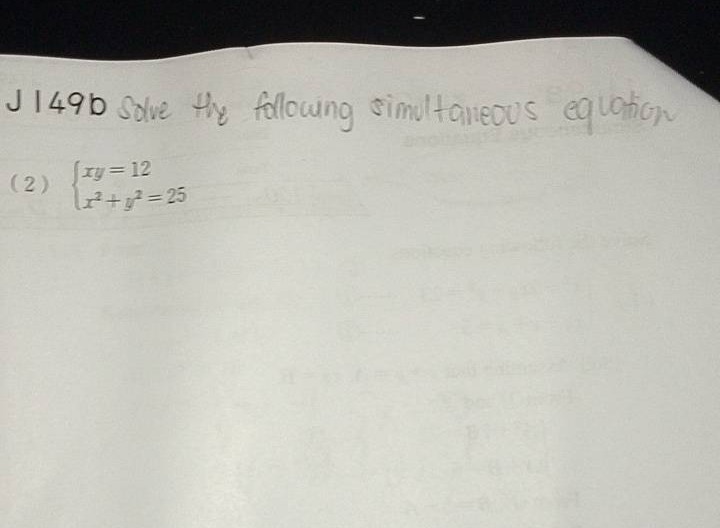 J149b Solve the following simultaneous equation
(2) { xy = 12
x² + y² = 25